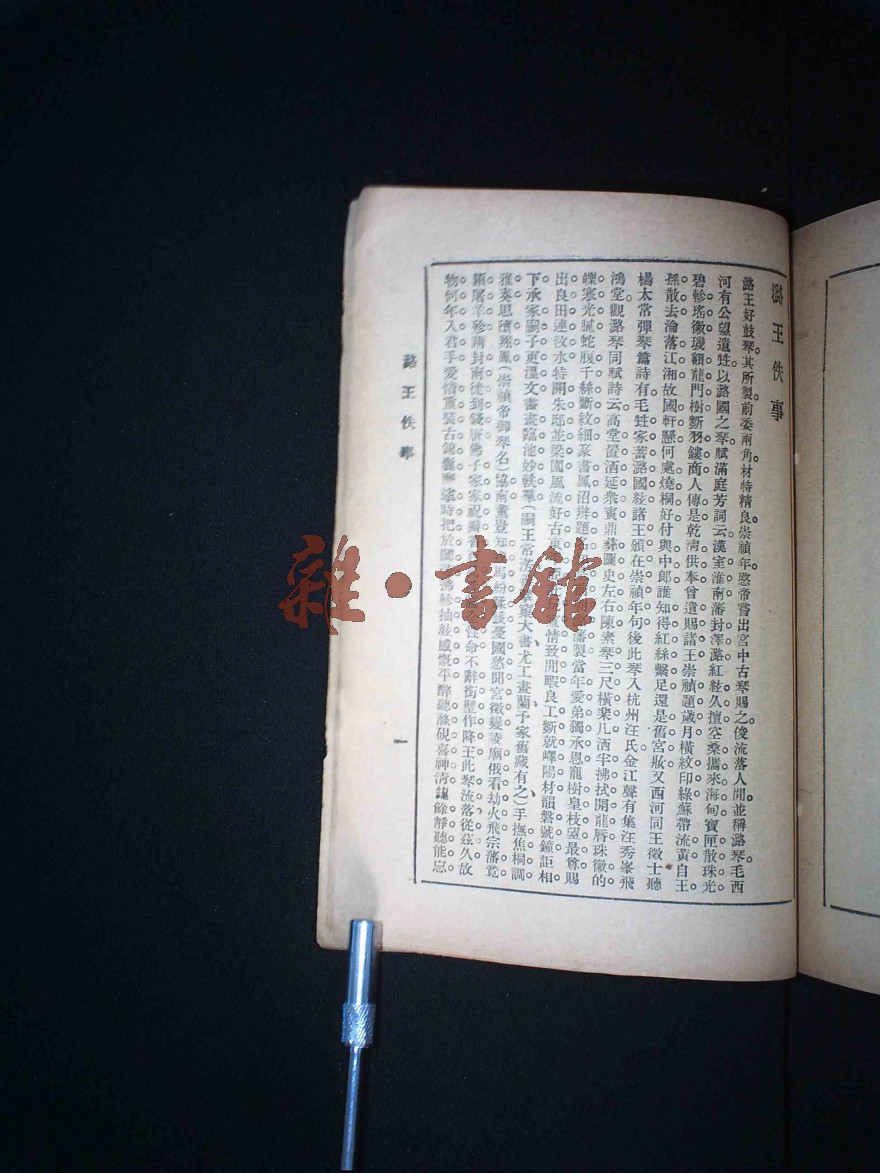 潞王佚事
潞王好鼓琴。其所製前委兩角。材特精良。崇禎年。愍帝嘗出宮中古琴賜之。後流落人間。並稱潞琴。毛西
河有公望遺甡以潞國之琴賦滿庭芳詞云。漢室淮南。藩封澤潞。紅絃久擅空桑。攜來海甸。寶匣散珠光。
碧軫瑤徽璣翻。龍門樹斵羽鏤商。人傳是乾清供奉。曾遣賜諸王。崇禎題歲月。橫紋印綠。蘇帶流黃。自王
孫散去。淪落江湘。故國軒懸何處。燒桐好付與中郎。誰知得紅絲繫足。還是舊宮妝。又西河同王徵士聽
楊太常彈琴篇詩。有毛甡家蓄潞國絃。諸王頒在崇禎年句。後此琴入杭州汪氏。金江聲有集汪秀峯飛
鴻堂觀潞琴同賦詩云。高堂置酒延衆賓。鼎彝圖史左右陳。素琴三尺橫棐几。洒半拂拭開龍唇。珠徽的
皪寒光膩。蛇腹千絲斷紋細。篆書鳳沼辨題
藩製。當年愛弟獨承恩。寵樹皇枝望最尊。賜
出良田連汶水。特開朱邸並梁園。風流好古
情致閒暇良工斵。就嶧陽材韻磬。號鐘詎相
下。承家嗣子更溫文。書畫臨池妙軼羣。(嗣王常
大書。尤工畫蘭。予家舊藏有之)手撫焦桐調
雅奏。思墮翔鳳(崇禎帝御琴名)協南薰。豈知
馬紛
憂國愁聞宮徵變。陵廟俄看劫火飛。宗藩竟
類屠羊殄。請封南徙到錢唐。佛子家家祝瓣香
命不辭銜璧作降王。此琴流落從茲久。故
物何年入君手。愛惜重裝古錦囊。摩挲時把
軫抽絃感慨平。醉聽滌硯喜神清。鐘餘靜聽能忘
潞王佚事
一
雜·書館